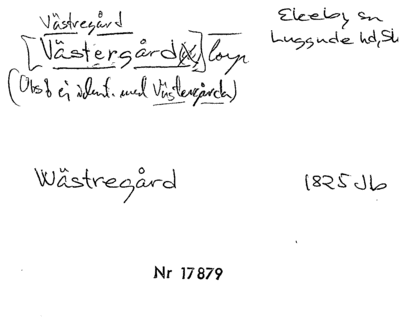 Västregård
Ekeby sn
[Västergård(x)] torp
Luggude hd, Sk
(Obs! ej ident. med Västergårda)
Wästregård 1825 Jb
Nr 17879